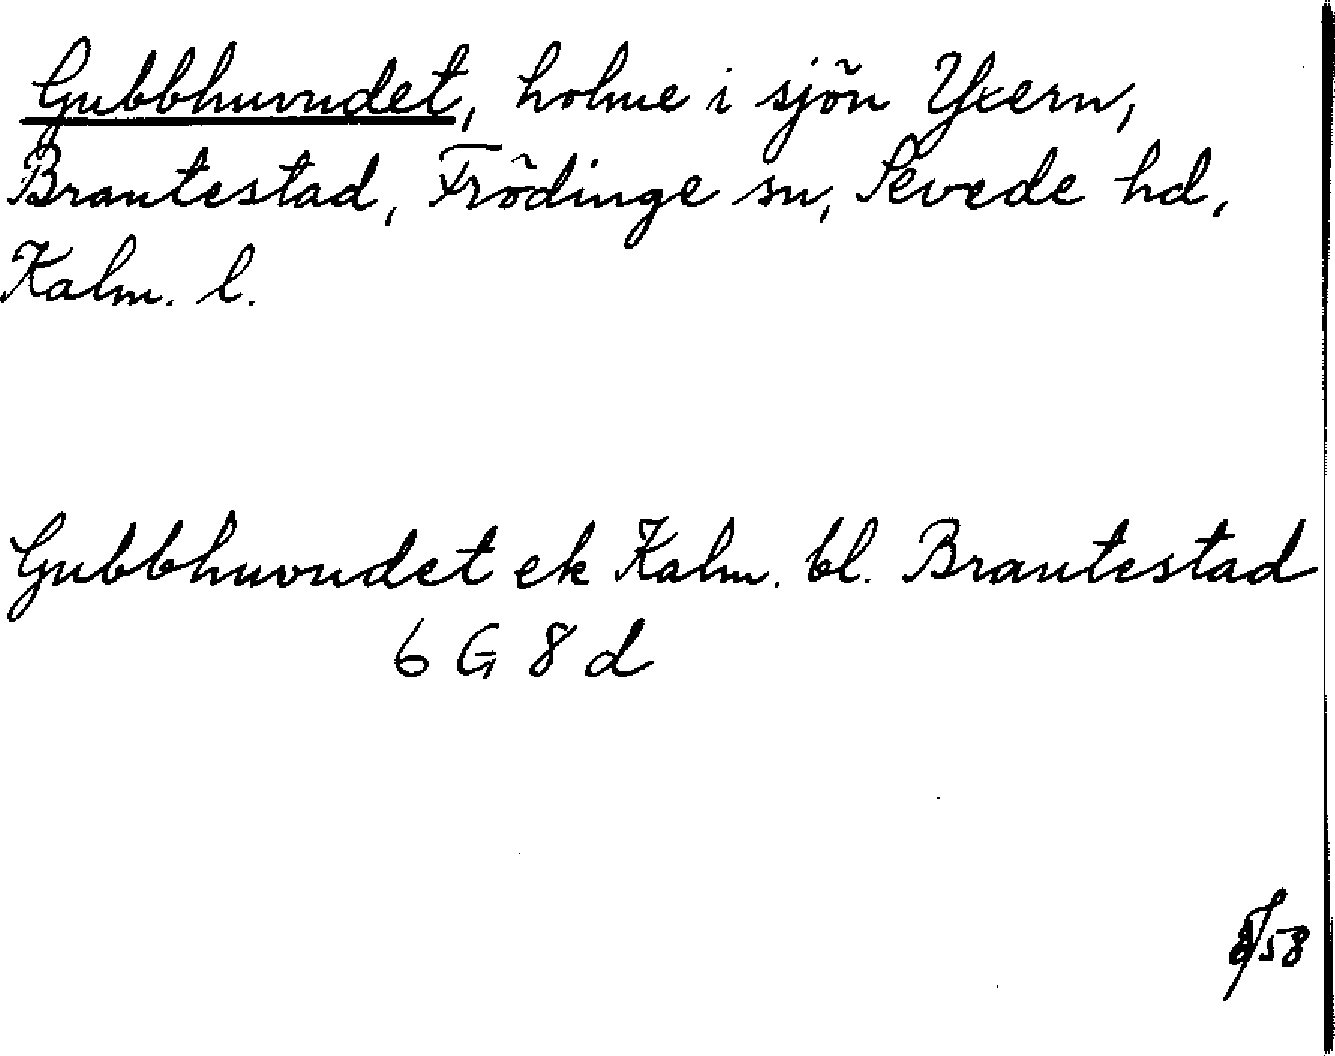 Gubbhuvudet, holme i sjön Yxern,
Brantestad, Frödinge sn, Sevede hd,
Kalm. l.
Gubbhuvudet ek Kalm. bl. Brantestad
6 G 8 d
58